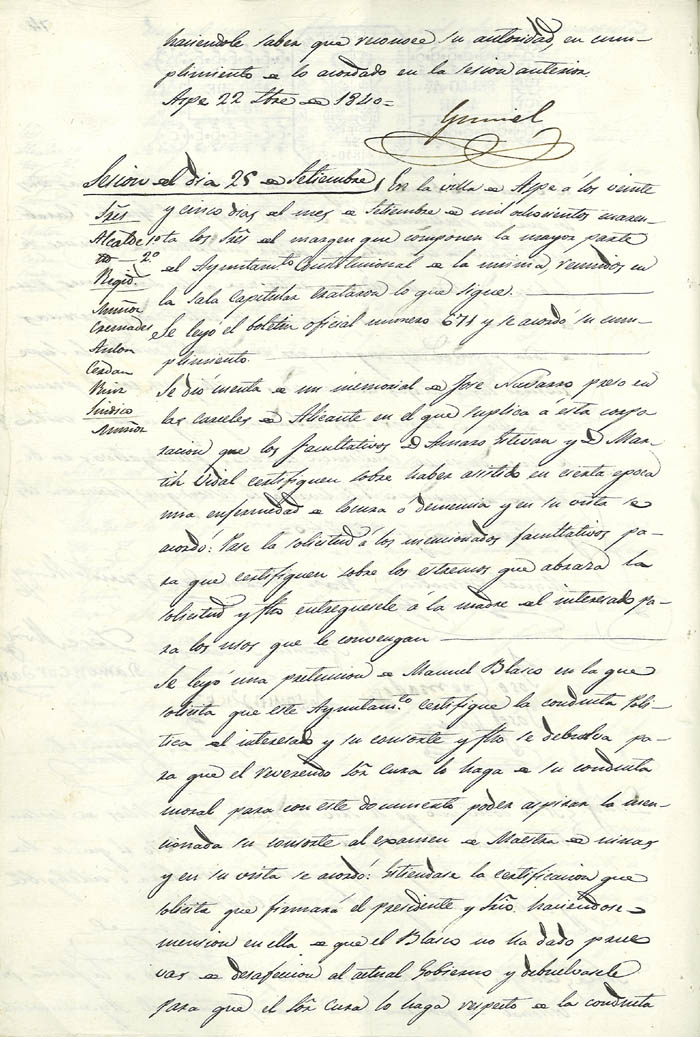 haciendole saber que reconoce su autoridad, en cum-
plimiento de lo acordado en la sesion anterior
Aspe 22 7bre de 1840=
Gumiel
Sesion del dia 25 de Setiembre
Sres
Alcalde 1º
2º
Regid.s
Muñoz
Cremades
Anton
Cerdan
Ruiz
Sindico
Muñoz
En la villa de Aspe á los veinte
y cinco dias del mes de Setiembre de mil ochocientos cuaren-
ta los Sres del margen que componen la mayor parte
del Ayuntam.to Constitucional de la misma reunidos en
la Sala Capitular trataron lo que sigue.
Se leyó el boletin oficial numero 671 y se acordó su cum-
plimiento.
Se dió cuenta de un memorial de Jose Navarro preso en
las carceles de Alicante en el que suplica á esta corpo
racion que los facultativos D. Amaro Estevan y D. Mar-
tin Vidal certifiquen sobre haber asistido en cierta epoca
una enfermedad de locura ó demencia y en su vista se
acordó: Pase la solicitud á los mencionados facultativos pa-
ra que certifiquen sobre los estremos que abraza la
solicitud y fho entreguesele á la madre del interesado pa-
ra los usos que le convengan
Se leyó una pretencion de Manuel Blasco en la que
solicita que este Ayuntam.to certifique la conducta Poli-
tica del interesado y su consorte y fho se debuelva pa-
ra que el reverendo Sor Cura lo haga de su conducta
moral para con este documento poder aspirar la men-
cionada su consorte al examen de Maestra de niñas
y en su vista se acordó: Estiendase la certificacion que
solicita que firmará el presidente y Srio. haciendose
mension en ella de que el Blasco no ha dado prue
vas de desafeccion al actual Gobierno y debuelvasele
para que el Sor Cura lo haga respecto de la conducta